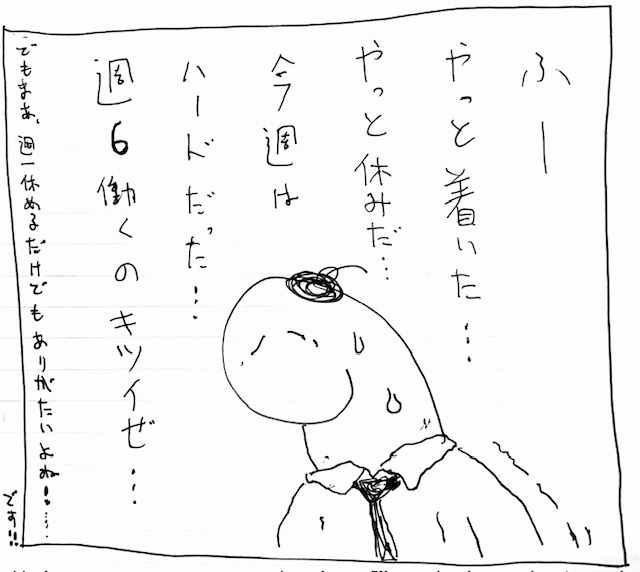 ふー
やっと着いた…
やっと休みだ…
今週は
ハードだった…
週6働くのキツイぜ…
でもまあ、週一休めるだけでもありがたいよね！……
です!!